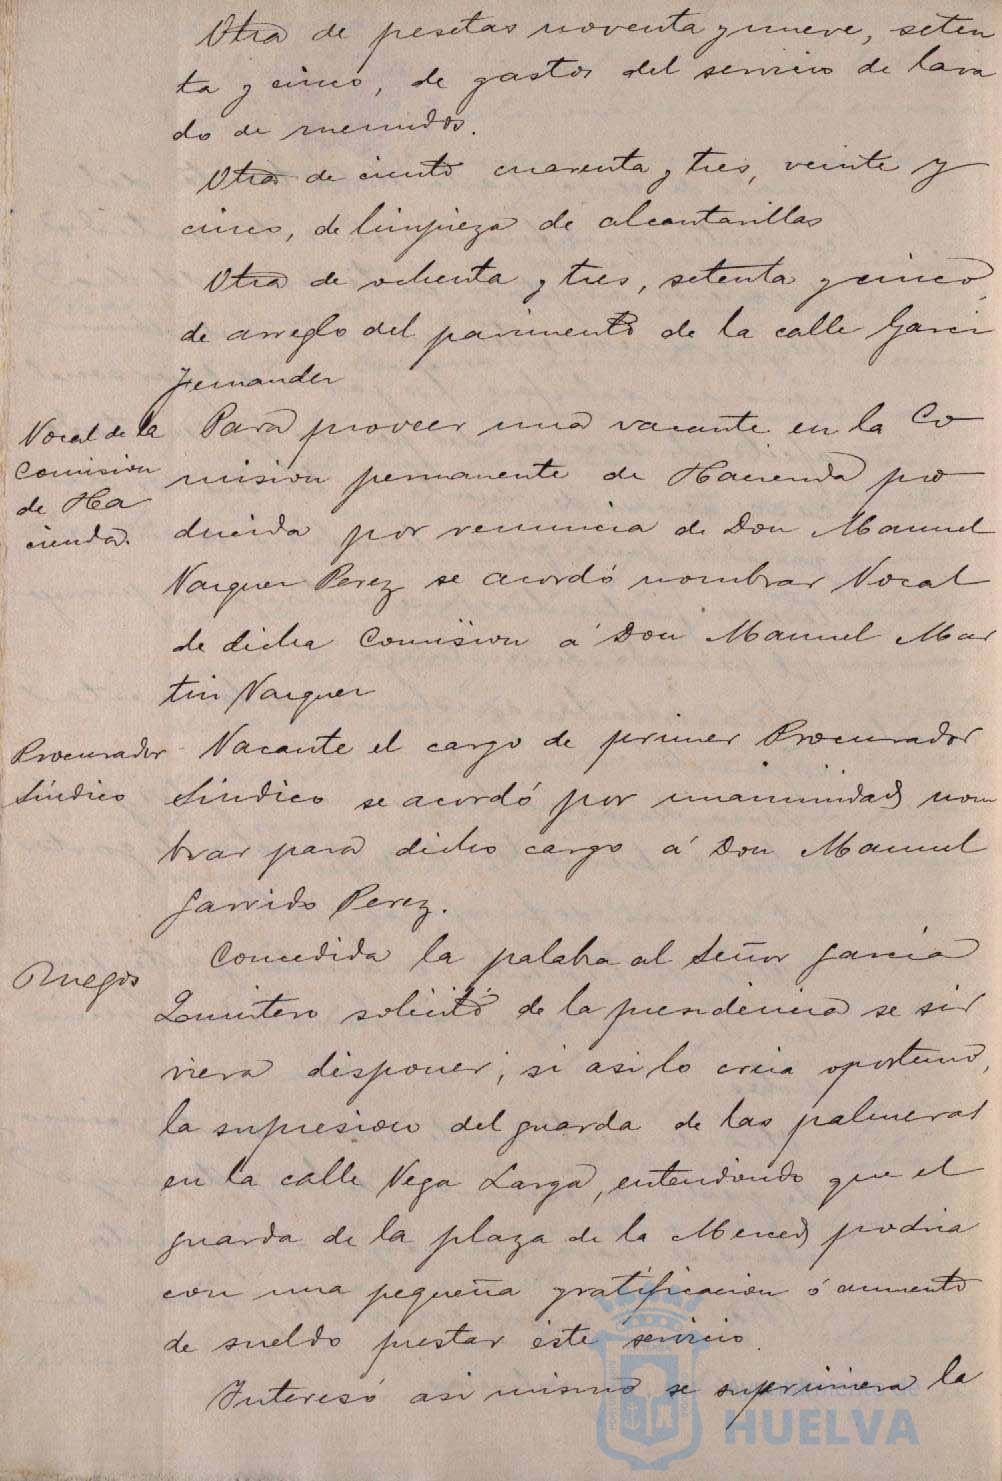 Otra de pesetas noventa y nueve, seten
ta y cinco, de gastos del servicio de lava
do de menudos.
Otra de ciento cuarenta y tres, veinte y
cinco, de limpieza de alcantarillas
Otra de ochenta y tres, setenta y cinco,
de arreglo del pavimento de la calle Garci
Fernandez
Vocal de la
Comision
de Ha
cienda.
Para proveer una vacante en la Co
mision permanente de Hacienda pro
ducida por renuncia de Don Manuel
Vazquez Perez se acordó nombrar Vocal
de dicha Comision á Don Manuel Mar
tin Vazquez
Procurador
Síndico
Vacante el cargo de primer Procurador
Sindico se acordó por unanimidad nom
brar para dicho cargo á Don Manuel
Garrido Perez.
Ruegos
Concedida la palabra al Señor García
Quintero solicitó de la presidencia se sir
viera disponer, si asi lo creia oportuno,
la supresion del guarda de las palmeras
en la calle Vega Larga, entendiendo que el
guarda de la plaza de la Merced podria
con una pequeña gratificacion ó aumento
de sueldo prestar este servicio.
Interesó asi mismo se suprimiera la
Ayuntamiento de
HUELVA